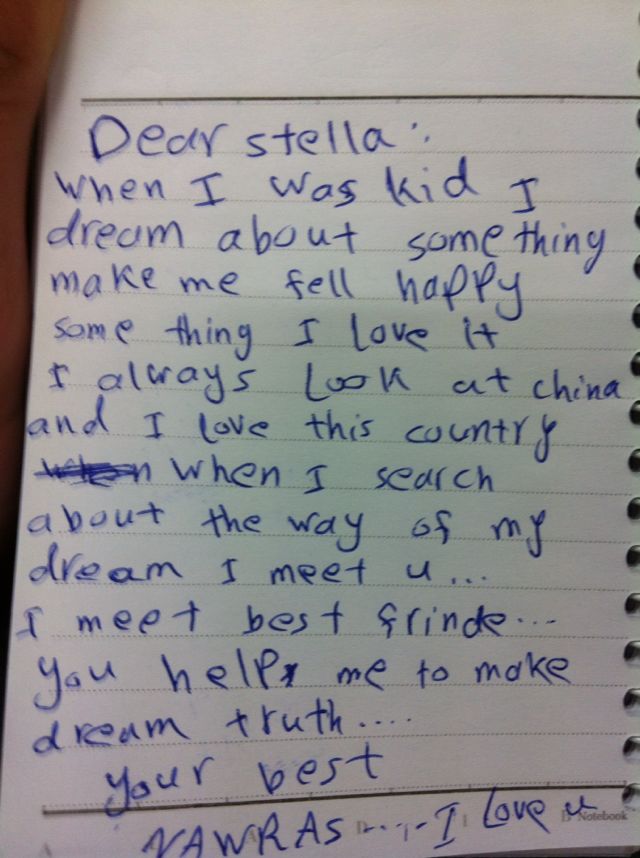 Dear stella :.
When I was kid I
dream about some thing
make me fell happy
some thing I love it
I always Look at china
and I love this country
when I search
about the way of my
dream I meet u...
I meet best frinde...
you help me to make
dream truth....
your best
NAWRAS ..... I Love u
Notebook